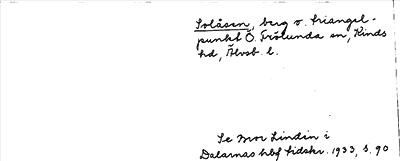 Solåsen, berg o. triangel-
punkt Ö. Frölunda sn, Kinds
hd, Älvsb. l.
Se Mor Lindin i
Dalarnas hbf tidskr. 1933, s. 90